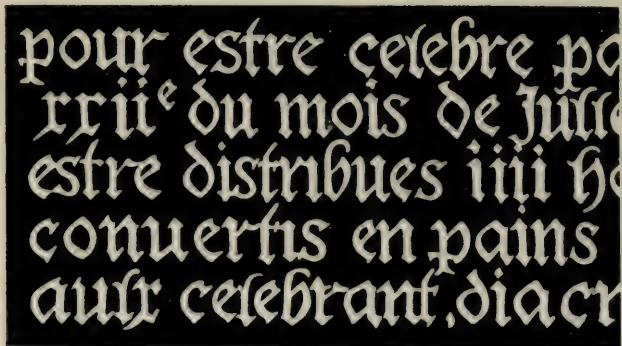 pour estre celebre
xxiiᵉ du mois de Julle
estre distribues iiii he
conuertis en pains
aulx celebrant, diacr